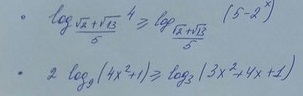 • log_{\frac{\sqrt{2}+\sqrt{13}}{5}} 4 ⩾ log_{\frac{\sqrt{2}+\sqrt{13}}{5}} (5-2^x)
• 2 log_9 (4x²+1) ⩾ log_3 (3x²+4x+1)